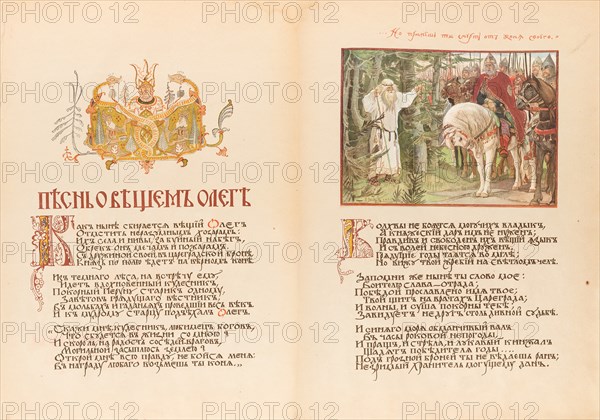 ...Но примешь ты смерть отъ коня своего.
ПѢСНЬ О ВѢЩЕМЪ ОЛЕГѢ
Какъ нынѣ сбирается вѣщій Олегъ
Отмстить неразумнымъ хозарамъ:
Ихъ села и нивы, за буйный набѣгъ,
Обрекъ онъ мечамъ и пожарамъ;
Съ дружиной своей, въ цареградской бронѣ,
Князь по полю ѣдетъ на вѣрномъ конѣ.
Изъ темнаго лѣса, на встрѣчу ему,
Идетъ вдохновенный кудесникъ,
Покорный Перуну старикъ одному,
Завѣтовъ грядущаго вѣстникъ,
Въ мольбахъ и гаданьяхъ проведшій весь вѣкъ.
И къ мудрому старцу подъѣхалъ Олегъ.
„Скажи мнѣ, кудесникъ, любимецъ боговъ,
Что сбудется въ жизни со мною?
И скоро-ль, на радость сосѣдей-враговъ,
Могильной засыплюсь землею?
Открой мнѣ всю правду, не бойся меня:
Въ награду любаго возьмешь ты коня..."
Волхвы не боятся могучихъ владыкъ,
А княжескій даръ имъ не нуженъ;
Правдивъ и свободенъ ихъ вѣщій языкъ
И съ волей небесною друженъ.
Грядущіе годы таятся во мглѣ;
Но вижу твой жребій на свѣтломъ челѣ.
Запомни же нынѣ ты слово мое:
Воителю слава — отрада;
Побѣдой прославлено имя твое;
Твой щитъ на вратахъ Цареграда;
И волны и суша покорны тебѣ;
Завидуетъ недругъ столь дивной судьбѣ.
И синяго моря обманчивый валъ
Въ часы роковой непогоды,
И пращъ, и стрѣла, и лукавый кинжалъ
Щадятъ побѣдителя годы...
Подъ грозной броней ты не вѣдаешь ранъ;
Незримый хранитель могущему данъ.